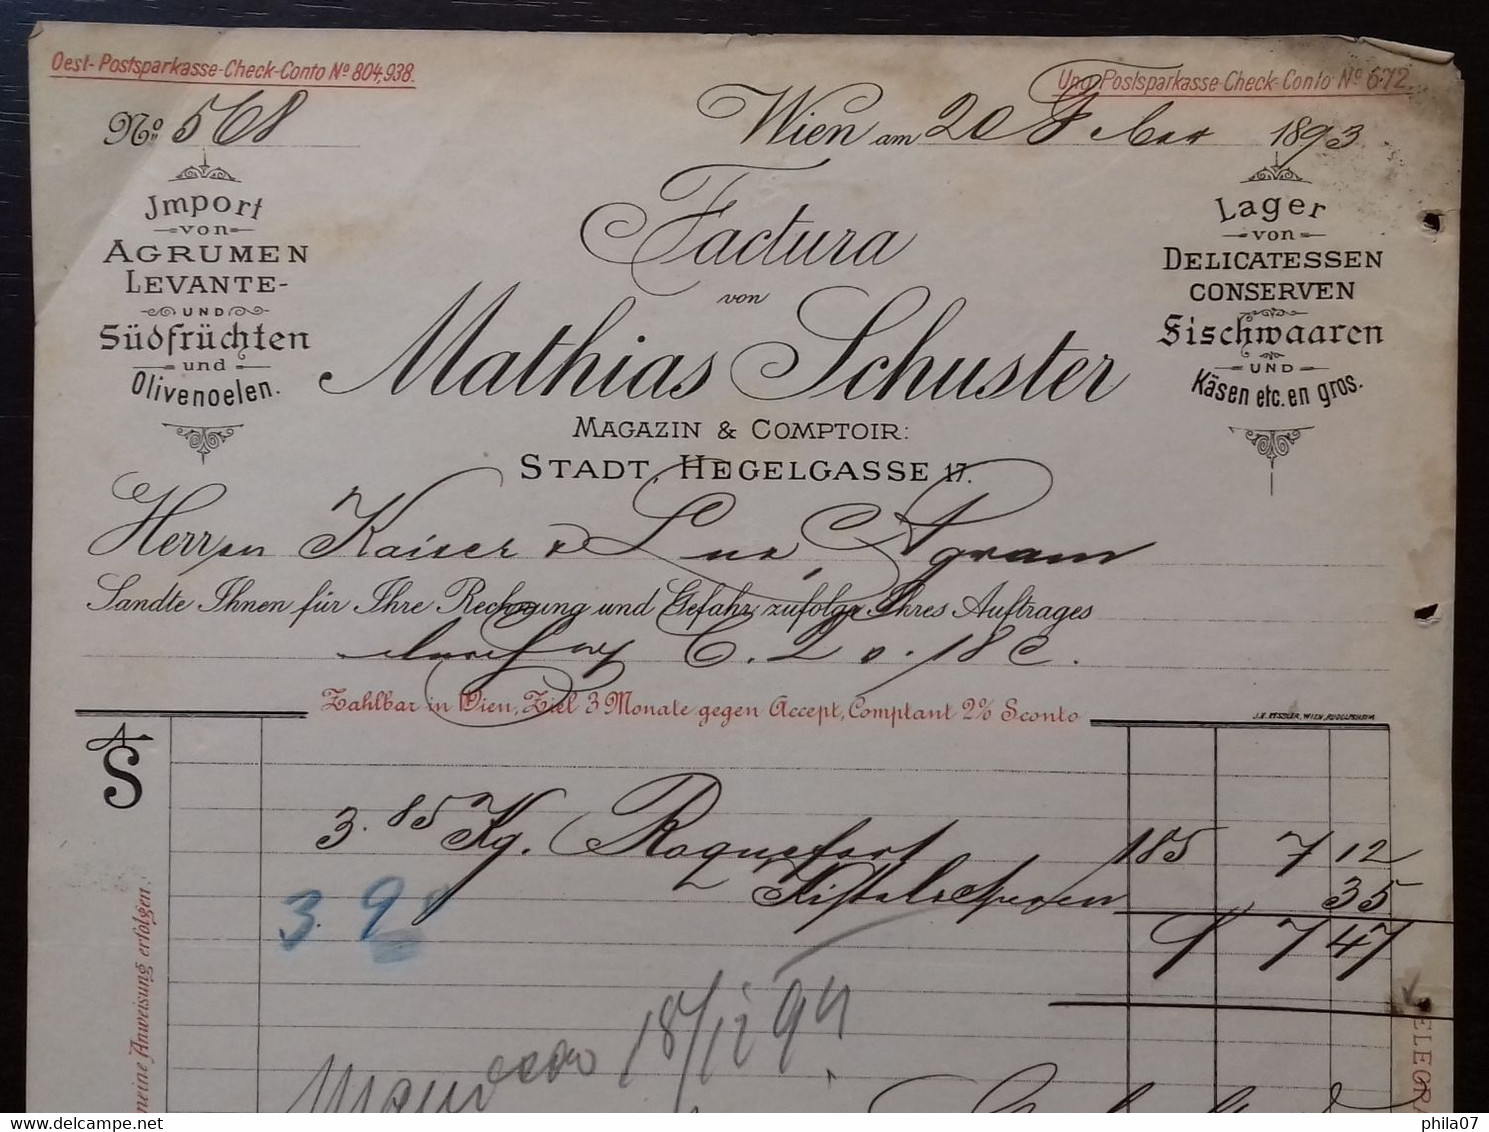 Oest- Postsparkasse-Check-Conto Nº 804,938.
Ung. Postsparkasse-Check-Conto Nº 672.
No. 568
Wien am 20 1893
Import
von
AGRUMEN
LEVANTE-
UND
Südfrüchten
und
Olivenoelen.
Factura
von
Mathias Schuster
MAGAZIN & COMPTOIR:
STADT, HEGELGASSE 17.
Lager
von
DELICATESSEN
CONSERVEN
Fischwaaren
UND
Käsen etc. en gros.
Herren Kaiser & Agram
Sandte Ihnen für Ihre Rechnung und Gefahr zufolge Ihres Auftrages
Zahlbar in Wien, Ziel 3 Monate gegen Accept, Comptant 2% Sconto
S
3.85 Kg. Roquefort 185 7 12
35
3.90
7 47
18/II 94
meine Anweisung erfolgen.
ELEGRA
phila07